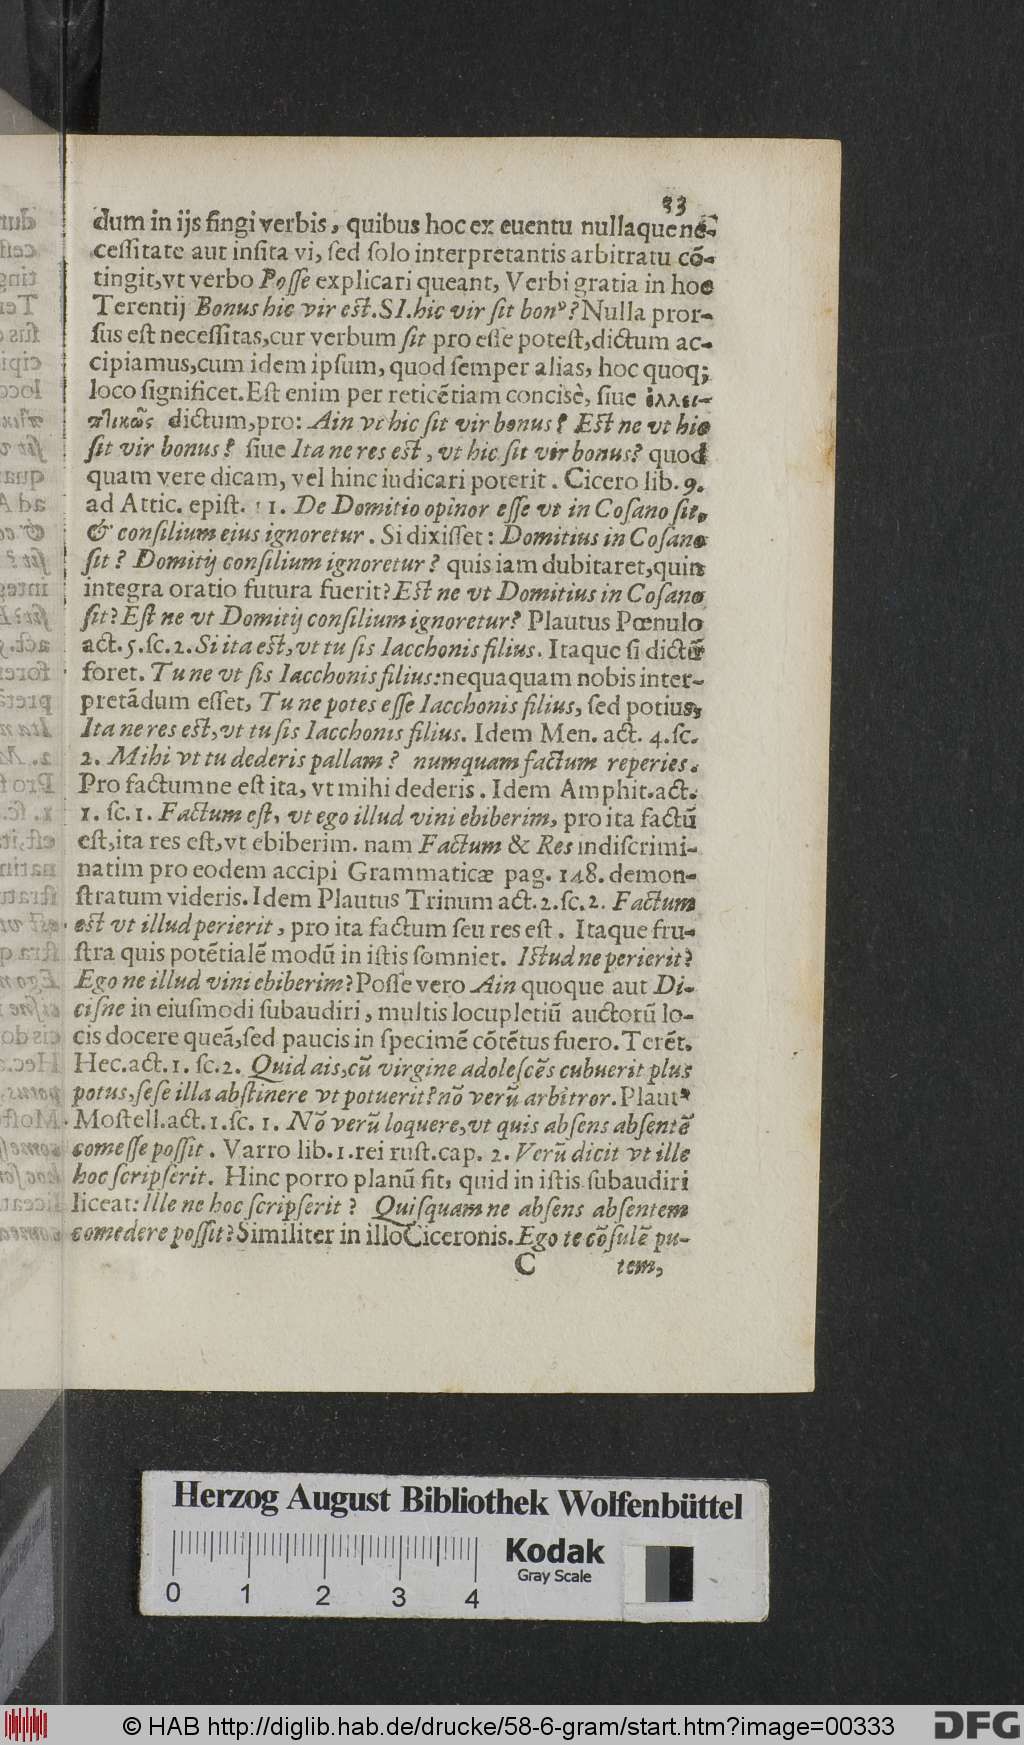 33
dum in ijs fingi verbis, quibus hoc ex euentu nullaque ne-
ceſſitate aut inſita vi, ſed ſolo interpretantis arbitratu cō-
tingit, vt verbo Poſſe explicari queant, Verbi gratia in hoc
Terentij Bonus hic vir est. SI. hic vir ſit bonꝰ? Nulla pror-
ſus eſt neceſſitas, cur verbum ſit pro eſſe poteſt, dictum ac-
cipiamus, cum idem ipſum, quod ſemper alias, hoc quoq;
loco ſignificet. Eſt enim per reticētiam conciſè, ſiue ἐλλει-
πλικῶς dictum, pro: Ain vt hic ſit vir bonus? Est ne vt hic
ſit vir bonus? ſiue Ita ne res est, vt hic ſit vir bonus? quod
quam vere dicam, vel hinc iudicari poterit. Cicero lib. 9.
ad Attic. epiſt. 11. De Domitio opinor eſſe vt in Coſano ſit,
& conſilium eius ignoretur. Si dixiſſet: Domitius in Coſano
ſit? Domitij conſilium ignoretur? quis iam dubitaret, quin
integra oratio futura fuerit? Est ne vt Domitius in Coſano
ſit? Eſt ne vt Domitij conſilium ignoretur? Plautus Pœnulo
act. 5. ſc. 2. Si ita est, vt tu ſis Iacchonis filius. Itaque ſi dictū
foret. Tu ne vt ſis Iacchonis filius: nequaquam nobis inter-
pretādum eſſet, Tu ne potes eſſe Iacchonis filius, ſed potius,
Ita ne res est, vt tu ſis Iacchonis filius. Idem Men. act. 4. ſc.
2. Mihi vt tu dederis pallam? numquam factum reperies.
Pro factumne eſt ita, vt mihi dederis. Idem Amphit. act.
1. ſc. 1. Factum eſt, vt ego illud vini ebiberim, pro ita factū
eſt, ita res eſt, vt ebiberim. nam Factum & Res indiſcrimi-
natim pro eodem accipi Grammaticæ pag. 148. demon-
ſtratum videris. Idem Plautus Trinum act. 2. ſc. 2. Factum
est vt illud perierit, pro ita factum ſeu res eſt. Itaque fru-
ſtra quis potētialē modū in iſtis ſomniet. Istud ne perierit?
Ego ne illud vini ebiberim? Poſſe vero Ain quoque aut Di-
ciſne in eiuſmodi ſubaudiri, multis locupletiū auctorū lo-
cis docere queā, ſed paucis in ſpecimē cōtētus fuero. Terēt.
Hec. act. 1. ſc. 2. Quid ais, cū virgine adoleſcēs cubuerit plus
potus, ſeſe illa abſtinere vt potuerit? nō verū arbitror. Plautꝰ
Moſtell. act. 1. ſc. 1. Nō verū loquere, vt quis abſens abſentē
comeſſe poſſit. Varro lib. 1. rei ruſt. cap. 2. Verū dicit vt ille
hoc ſcripſerit. Hinc porro planū fit, quid in iſtis ſubaudiri
liceat: Ille ne hoc ſcripſerit? Quiſquam ne abſens abſentem
comedere poſſit? Similiter in illo Ciceronis. Ego te cōſulē pu-
C tem,
Herzog August Bibliothek Wolfenbüttel
Kodak
Gray Scale
0 1 2 3 4
© HAB http://diglib.hab.de/drucke/58-6-gram/start.htm?image=00333
DFG